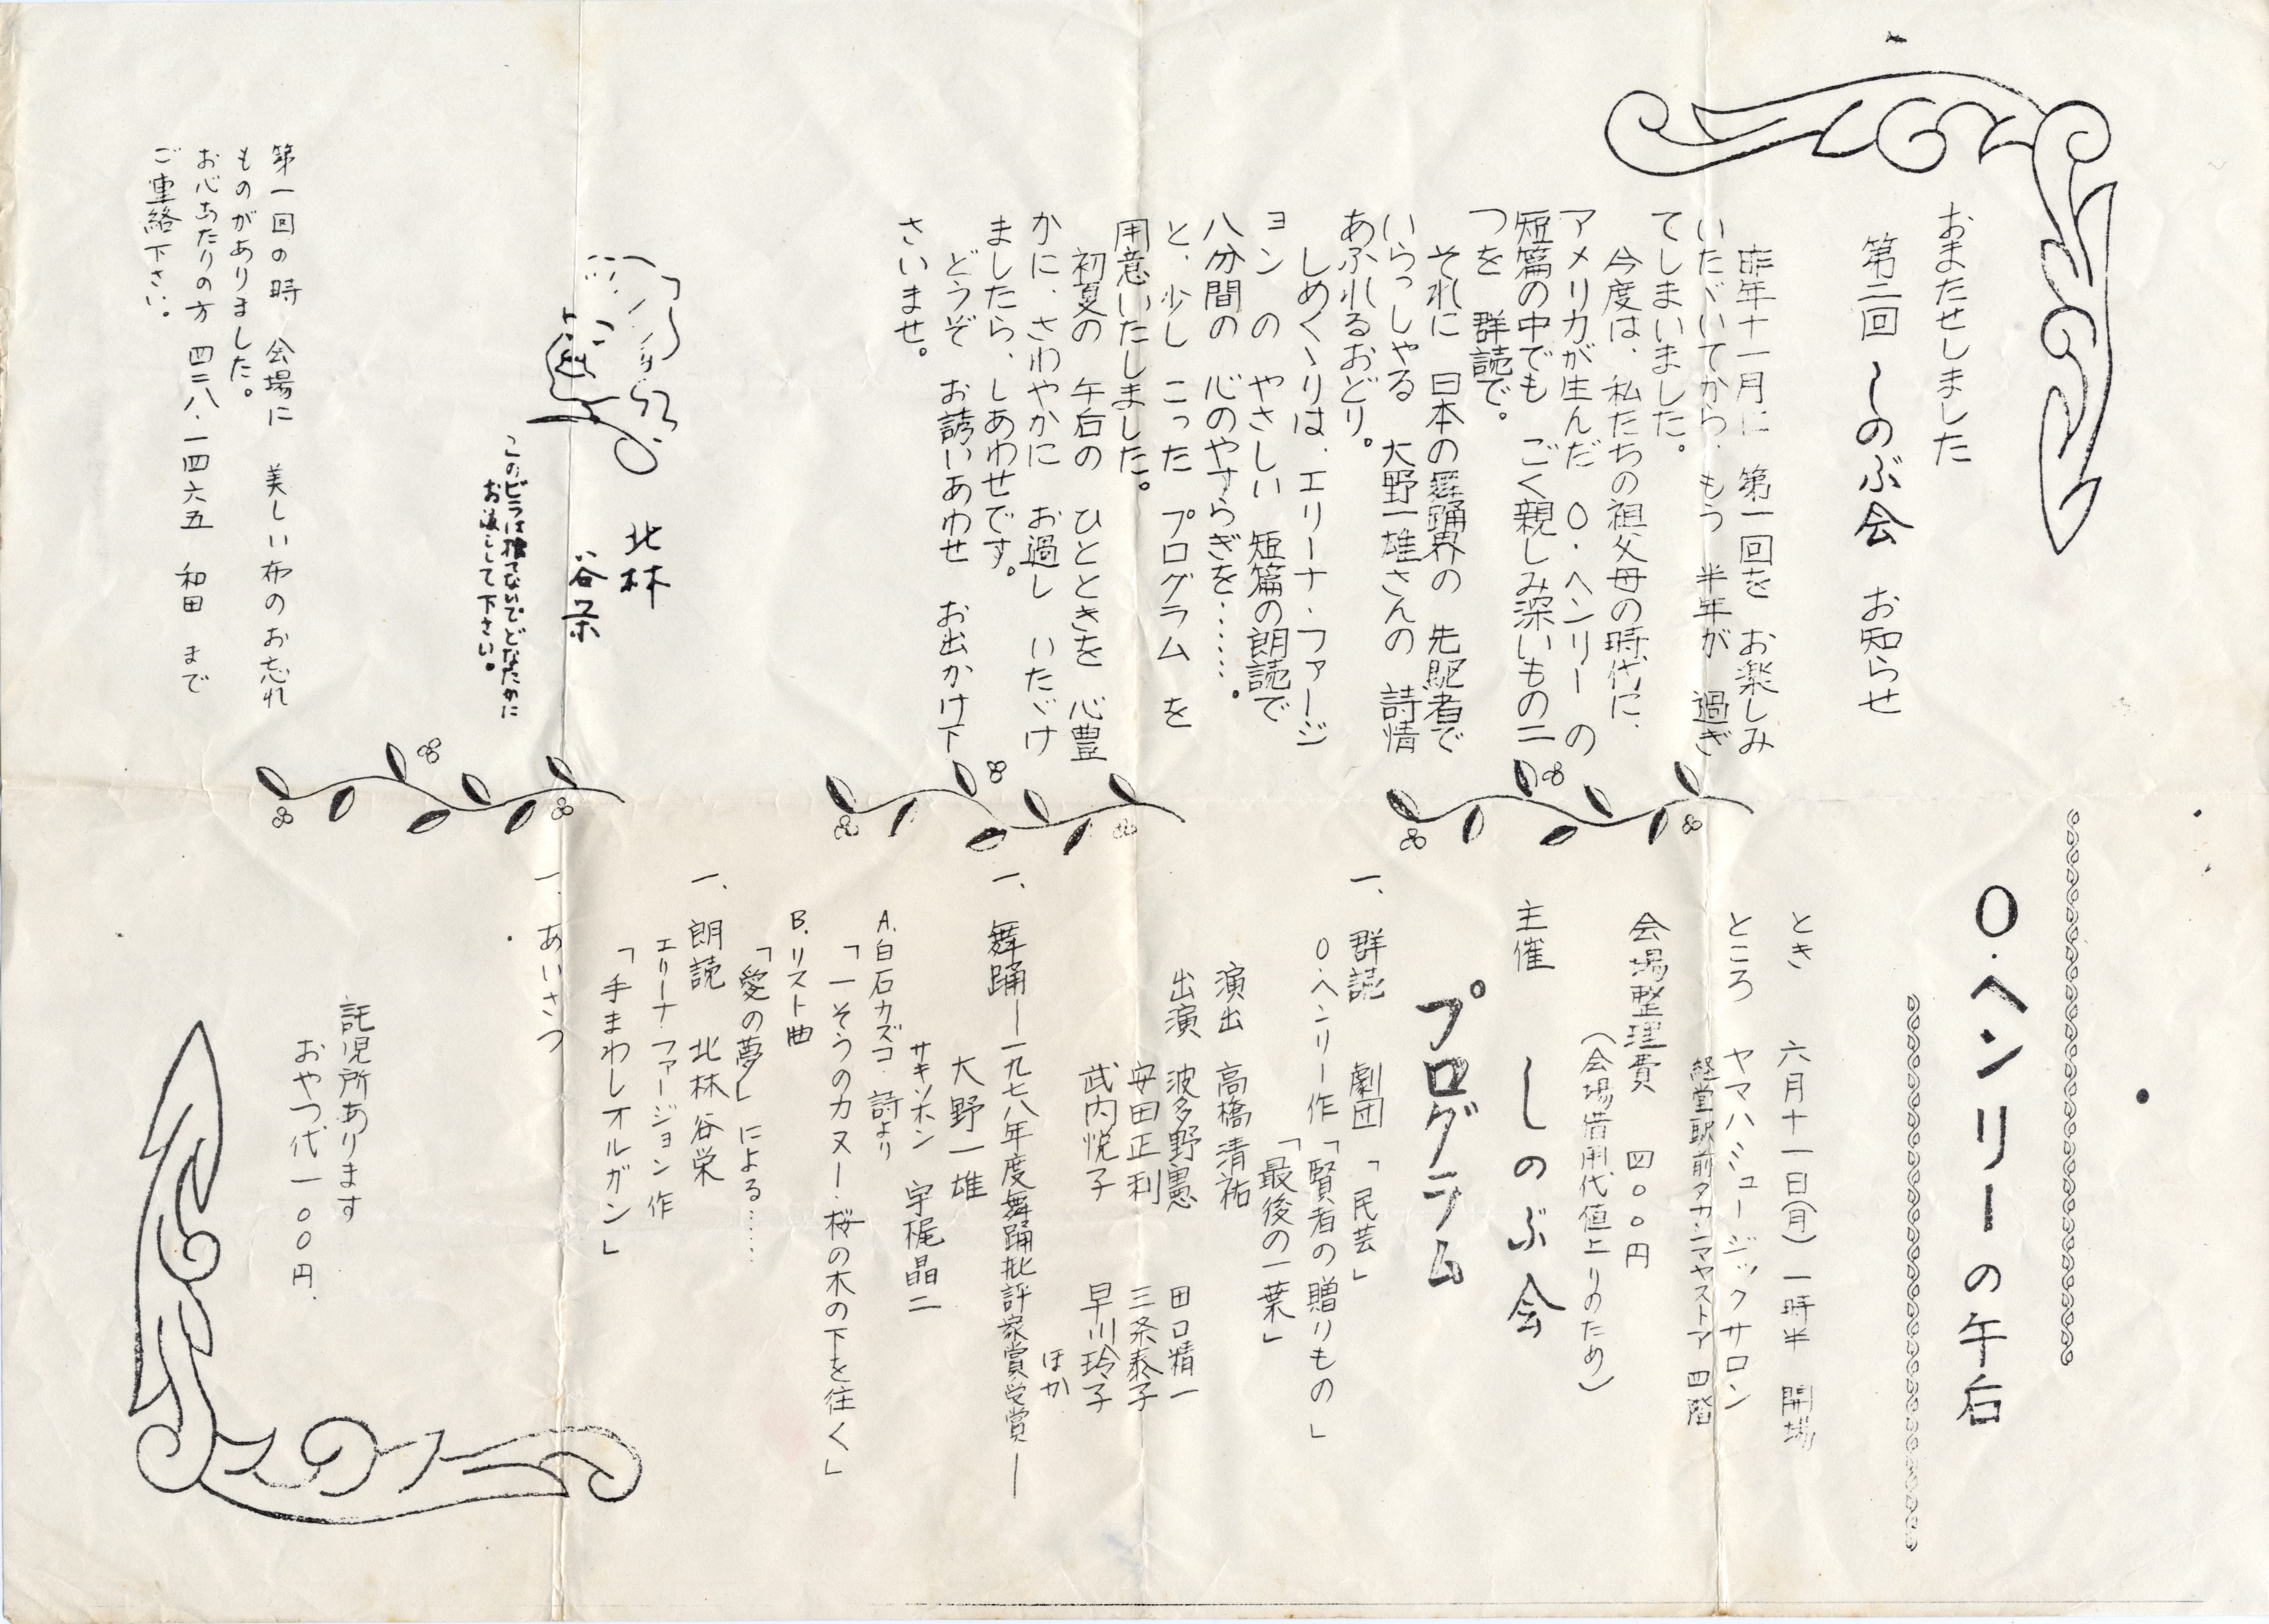 おまたせしました
第二回 しのぶ会 お知らせ
昨年十一月に 第一回を お楽しみ
いたゞいてから、もう 半年が 過ぎ
てしまいました。
今度は、私たちの祖父母の時代に、
アメリカが生んだ O・ヘンリー の
短篇の中でも ごく親しみ深いもの二
つを 群読で。
それに 日本の舞踊界の 先駆者で
いらっしゃる 大野一雄さんの 詩情
あふれるおどり。
しめくゝりは、エリーナ・ファージ
ョン の やさしい 短篇の朗読で
八分間の 心のやすらぎを……。
と、少し こった プログラム を
用意いたしました。
初夏の 午后の ひとときを 心豊
かに、さわやかに お過し いたゞけ
ましたら、しあわせです。
どうぞ お誘いあわせ お出かけ下
さいませ。
北林
谷栄
このビラは捨てないでどなたかに
お渡しして下さい。
第一回の時 会場に 美しい布のお忘れ
ものがありました。
お心あたりの方 四二八・一四六五 和田 まで
ご連絡下さい。
O・ヘンリーの午后
とき 六月十一日(月) 一時半 開場
ところ ヤマハミュージックサロン
経堂駅前タカシマヤストア 四階
会場整理費 四〇〇円
(会場借用代値上りのため)
主催 しのぶ会
プログラム
一、群読 劇団「民芸」
O・ヘンリー作「賢者の贈りもの」
「最後の一葉」
演出 高橋清祐
出演 波多野憲 田口精一
安田正利 三条泰子
武内悦子 早川玲子
ほか
一、舞踊―一九七八年度舞踊批評家賞受賞―
大野一雄
サキソホン 宇梶晶二
A.白石カズコ 詩より
「一そうのカヌー・桜の木の下を往く」
B.リスト曲
「愛の夢」による……
一、朗読 北林谷栄
エリーナ・ファージョン作
「手まわしオルガン」
一、あいさつ
託児所あります
おやつ代一〇〇円.